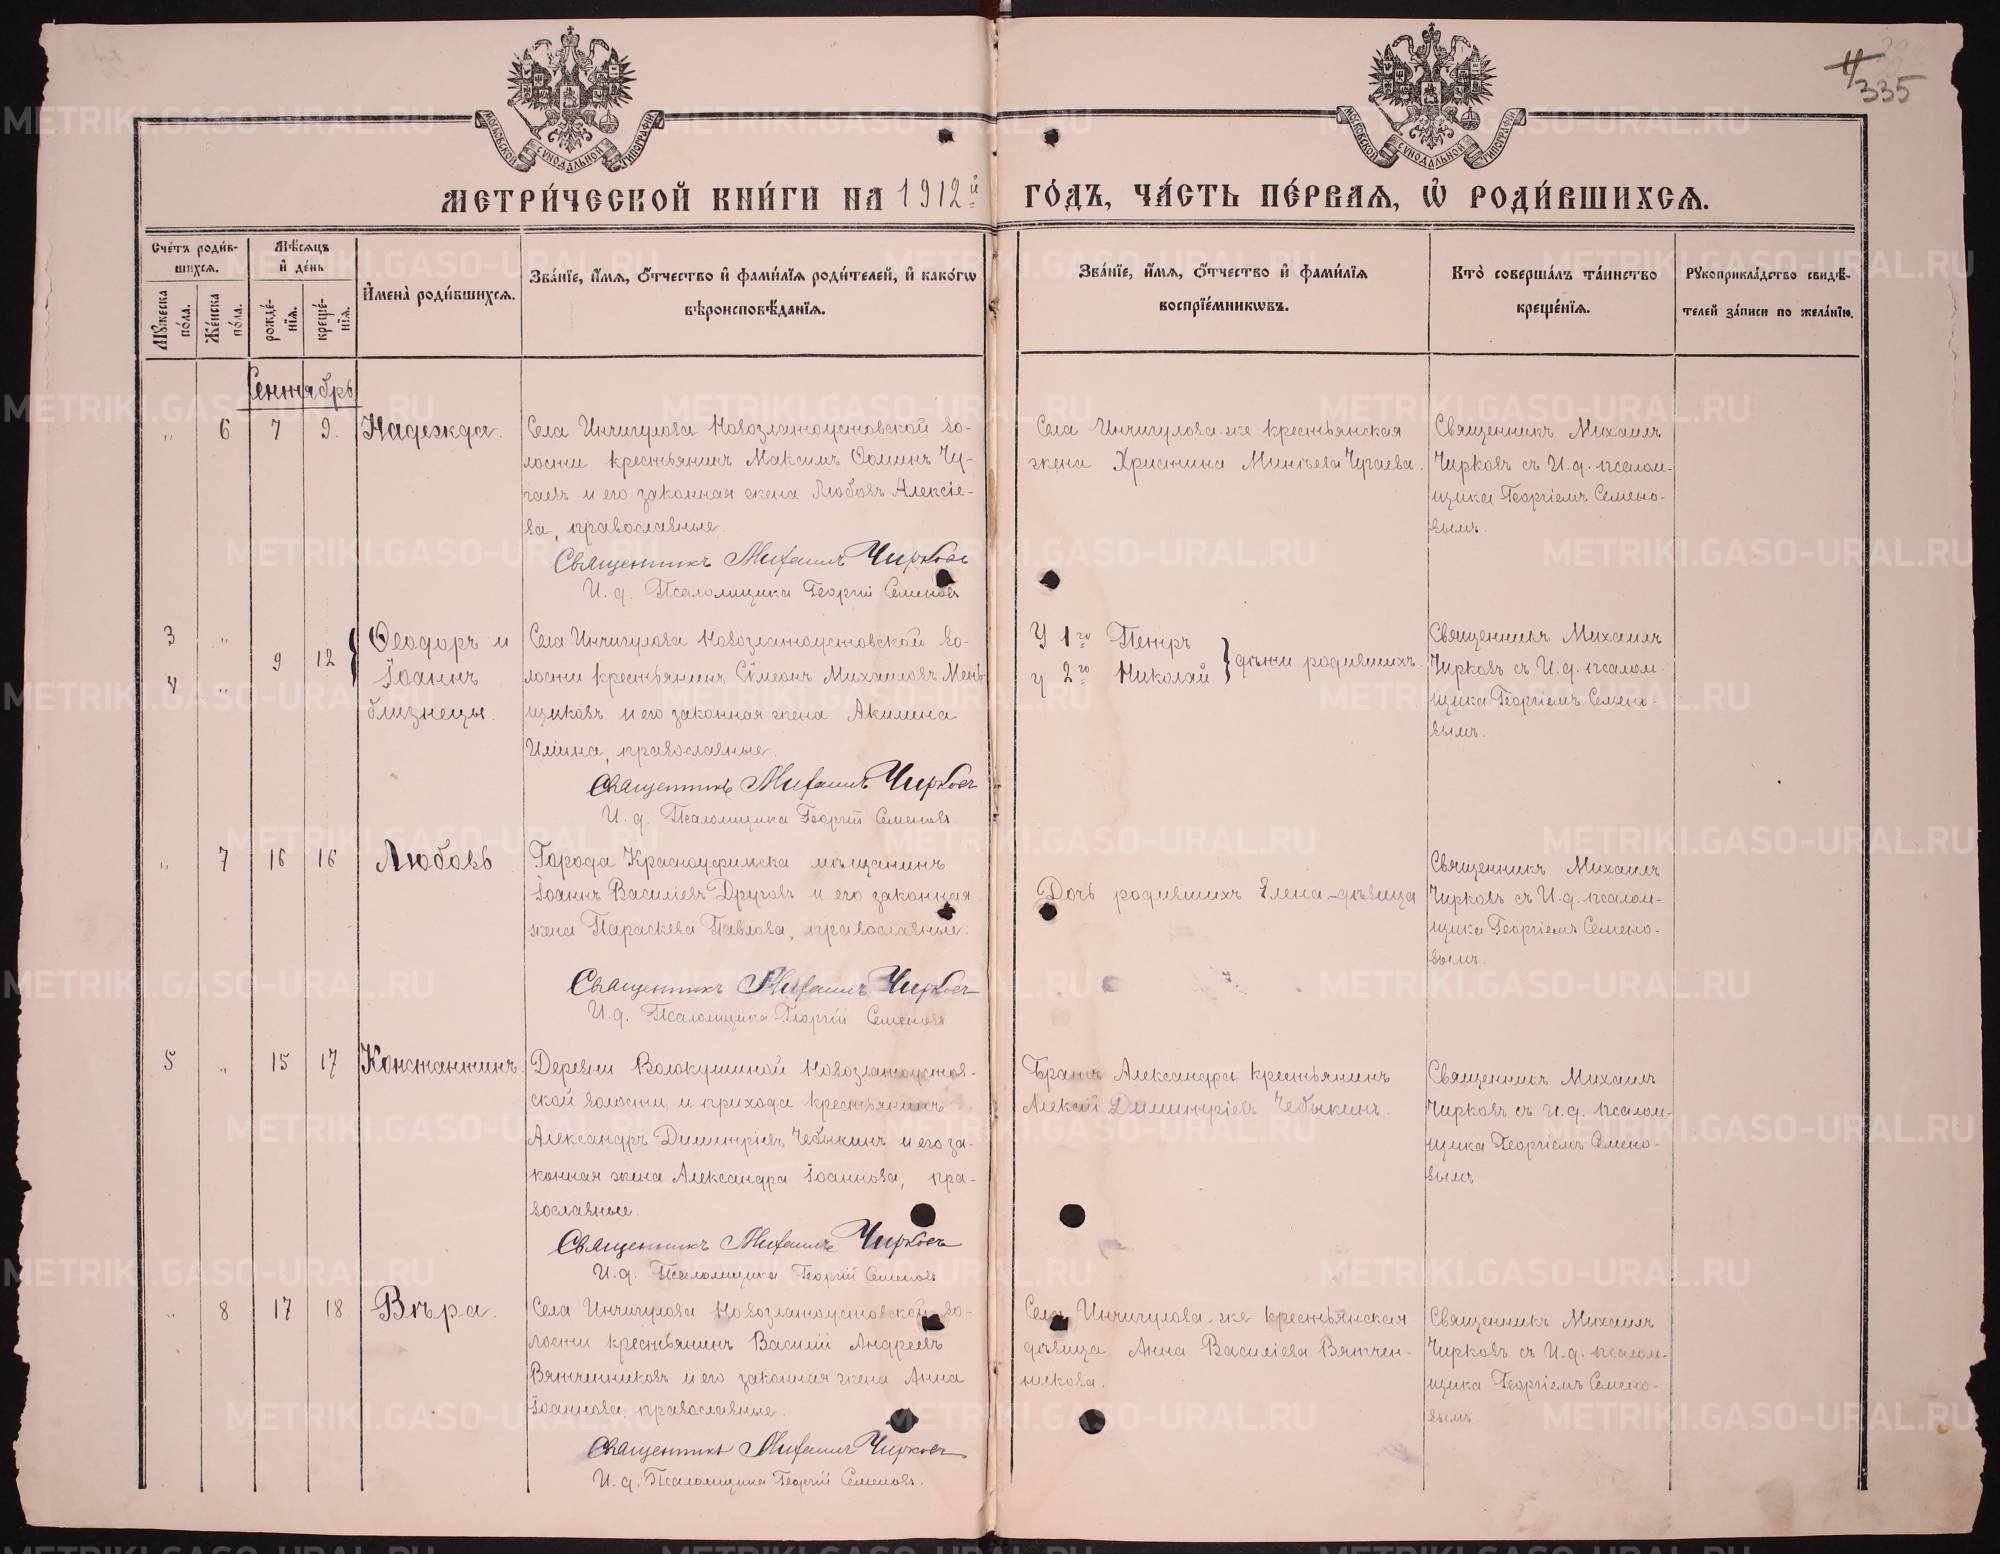 11
335
МОСКОВСКОЙ СУНОДАЛЬНОЙ ТИПОГРАФІИ
МОСКОВСКОЙ СУНОДАЛЬНОЙ ТИПОГРАФІИ
МЕТРИ́ЧЕСКОЙ КНИ́ГИ НА 1912й
ГО́ДЪ, ЧА́СТЬ ПЕ́РВАЯ, Ѡ РОДИ́ВШИХСЯ.
Сче́тъ роди́в-
шихся.
Мѣ́сяцъ
и де́нь
Му́жеска по́ла.
Же́нска по́ла.
рожде́-
нія.
креще́-
нія.
И҆мена̀ роди́вшихся.
Зва́нїе, и҆́мя, о҆́тчество и҆ фами́лїя роди́телей, и҆ како́гѡ
вѣроисповѣ́данїя.
Зва́нїе, и҆́мя, о҆́тчество и҆ фами́лїя
воспрїе́мникѡвъ.
Кто̀ соверша́лъ та́инство
креще́нїя.
Рукоприкла́дство свидѣ́-
телей за́писи по жела́нїю.
Сентябрь
" 6 7 9. Надежда.
Села Инчигулова Новозлатоустовской во-
лости крестьянинъ Максимъ Ѳоминъ Чу-
гаевъ и его законная жена Любовь Алексіе-
ва, православные.
Священникъ Михаилъ Чирковъ
И. д. Псаломщика Георгій Семеновъ
Села Инчигулова же крестьянская
жена Христина Минѣева Чугаева.
Священникъ Михаилъ
Чирковъ съ И. д. псалом-
щика Георгіемъ Семено-
вымъ.
3 "
4 "
9 12
Ѳеодоръ и
Іоаннъ
близнецы.
Села Инчигулова Новозлатоустовской во-
лости крестьянинъ Сѵмеонъ Михаиловъ Мень-
щиковъ и его законная жена Акилина
Иліина, православные.
Священникъ Михаилъ Чирковъ
И. д. Псаломщика Георгій Семеновъ
У 1го Петръ
у 2го Николай
дѣти родившихъ.
Священникъ Михаилъ
Чирковъ съ И. д. псалом-
щика Георгіемъ Семено-
вымъ.
" 7 16 16 Любовь
Города Красноуфимска мѣщанинъ
Іоаннъ Василіевъ Друговъ и его законная
жена Параскева Павлова, православные.
Священникъ Михаилъ Чирковъ
И. д. Псаломщика Георгій Семеновъ
Дочь родившихъ Елена-дѣвица
Священникъ Михаилъ
Чирковъ съ И. д. псалом-
щика Георгіемъ Семено-
вымъ.
5 " 15 17 Константинъ.
Деревни Волокушиной Новозлатоустов-
ской волости и прихода крестьянинъ
Александръ Димитріевъ Чебыкинъ и его за-
конная жена Александра Іоаннова, пра-
вославные.
Священникъ Михаилъ Чирковъ
И. д. Псаломщика Георгій Семеновъ
Братъ Александра крестьянинъ
Алексій Димитріевъ Чебыкинъ.
Священникъ Михаилъ
Чирковъ съ И. д. псалом-
щика Георгіемъ Семено-
вымъ
" 8 17 18 Вѣра.
Села Инчигулова Новозлатоустовской во-
лости крестьянинъ Василій Андреевъ
Вятченниковъ и его законная жена Анна
Іоаннова, православные.
Священникъ Михаилъ Чирковъ
И. д. Псаломщика Георгій Семеновъ.
Села Инчигулова же крестьянская
дѣвица Анна Василіева Вятчен-
никова.
Священникъ Михаилъ
Чирковъ съ И. д. псалом-
щика Георгіемъ Семено-
вымъ.